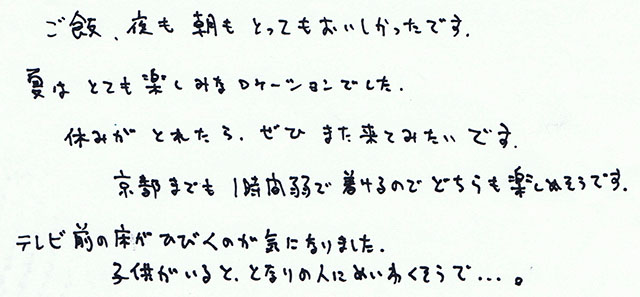 ご飯、夜も朝もとってもおいしかったです.
夏はとても楽しみなロケーションでした.
休みがとれたら、ぜひまた来てみたいです.
京都までも1時間弱で着けるのでどちらも楽しめそうです.
テレビ前の床がひびくのが気になりました.
子供がいると、となりの人にめいわくそうで...。